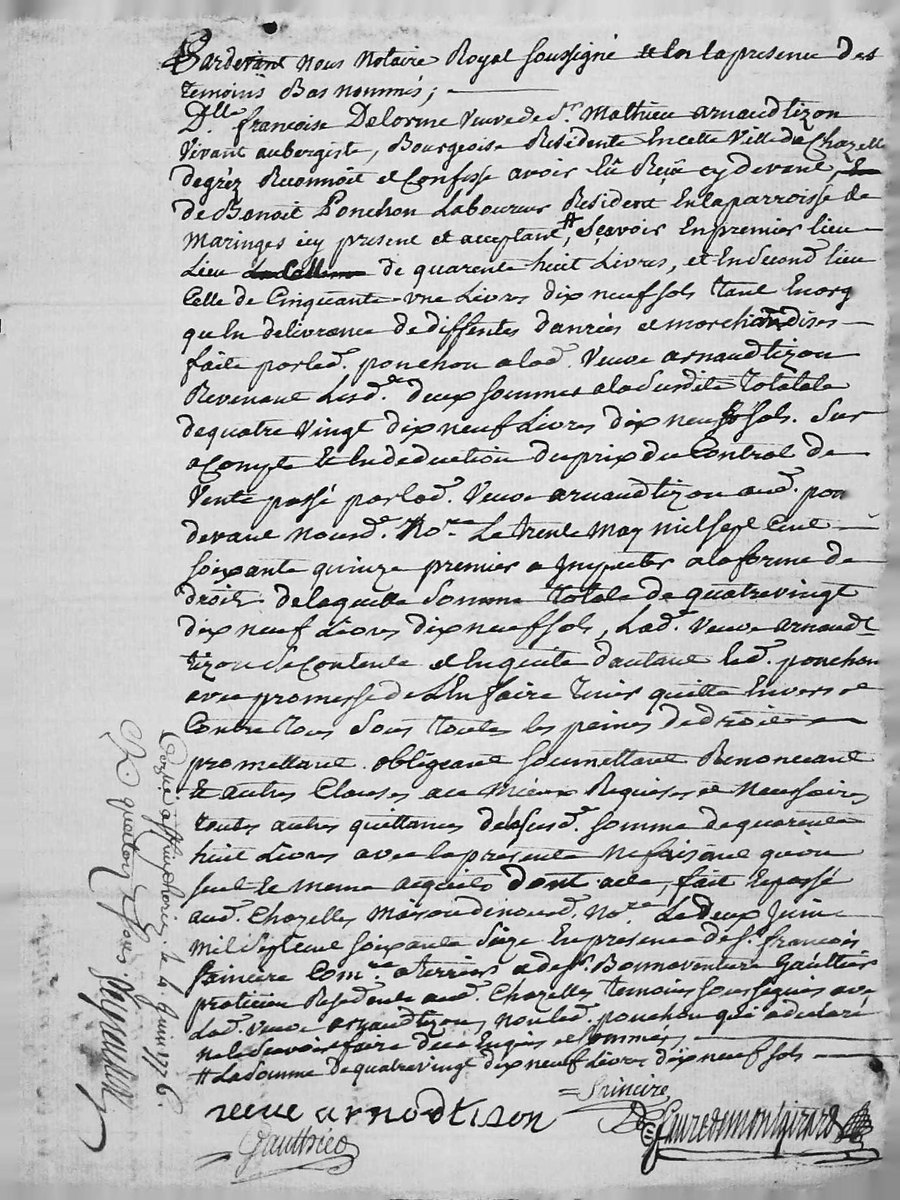 Pardevant nous Notaire Royal soussigné et en la presence des
temoins Bas nommés;
D.lle francoise Delorme veuve de S.r Mathieu arnaudtizon
vivant aubergiste, Bourgeoise Residente En cette Ville de Chazelle
degréz Reconnoit et Confesse avoir Eû Reçû cy devant
de Benoit Ponchon Laboureur Resident En la parroisse de
Maringes icy present et acceptant, # Sçavoir En premier lieu
Lieu de quarente huit Livres, et En Second lieu
Celle de Cinquante une Livres dix neuf sols tant En arg
qu'En délivrance de diffentes danrées et marchandises
faite par led. ponchon a lad. Veuve arnaudtizon
Revenant Lesd. deux sommes a la Susdite Totalale
de quatre Vingt dix neuf Livres dix neuf sols. Sur
et Compte Et En deduction du prix du Contrat de
Vente passé par lad. Veuve arnaudtizon aud. pon
devant nousd. No.re Le trente May mil sept Cent
soixante quinze premier a Inspecter a la forme de
droit de laquelle Somme totale de quatrevingt
dix neuf Livres dix neuf sols, Lad. Veuve arnaud
tizon se Contente et En quite d'autant Led. ponchon
avec promesse de L'En faire tenir quitte Envers et
Contre tous Sous toutes les peines de droit
promettant obligeant soumettant Renonceant
Et autres Clauses au Mieux Requises et Necessaires
toutes autres quittances de la susd. somme de quarente
huit Livres avec la presente Ne faisant qu'un
seul Et meme acquit dont acte, fait Et passé
aud. Chazelles Maison de nousd. No.re Le deux Juin
Mil Septcent soixante Seize En presence de S.r françois
Princire Com.re a terriers et de S.r Bonnaventure Gaultier
praticien Residents aud. Chazelles temoins soussignés avec
Lad. veuve arnaudtizon, non led. ponchon qui a declaré
ne le sçavoir faire de ce Enquis et sommés.
# La Somme de quatrevingt dix neuf Livres dix neuf sols
veuve arnodtison
Princire
Gaulthier
Fauredemontgirard
le 4 Juin 1776.
R quatorze sous